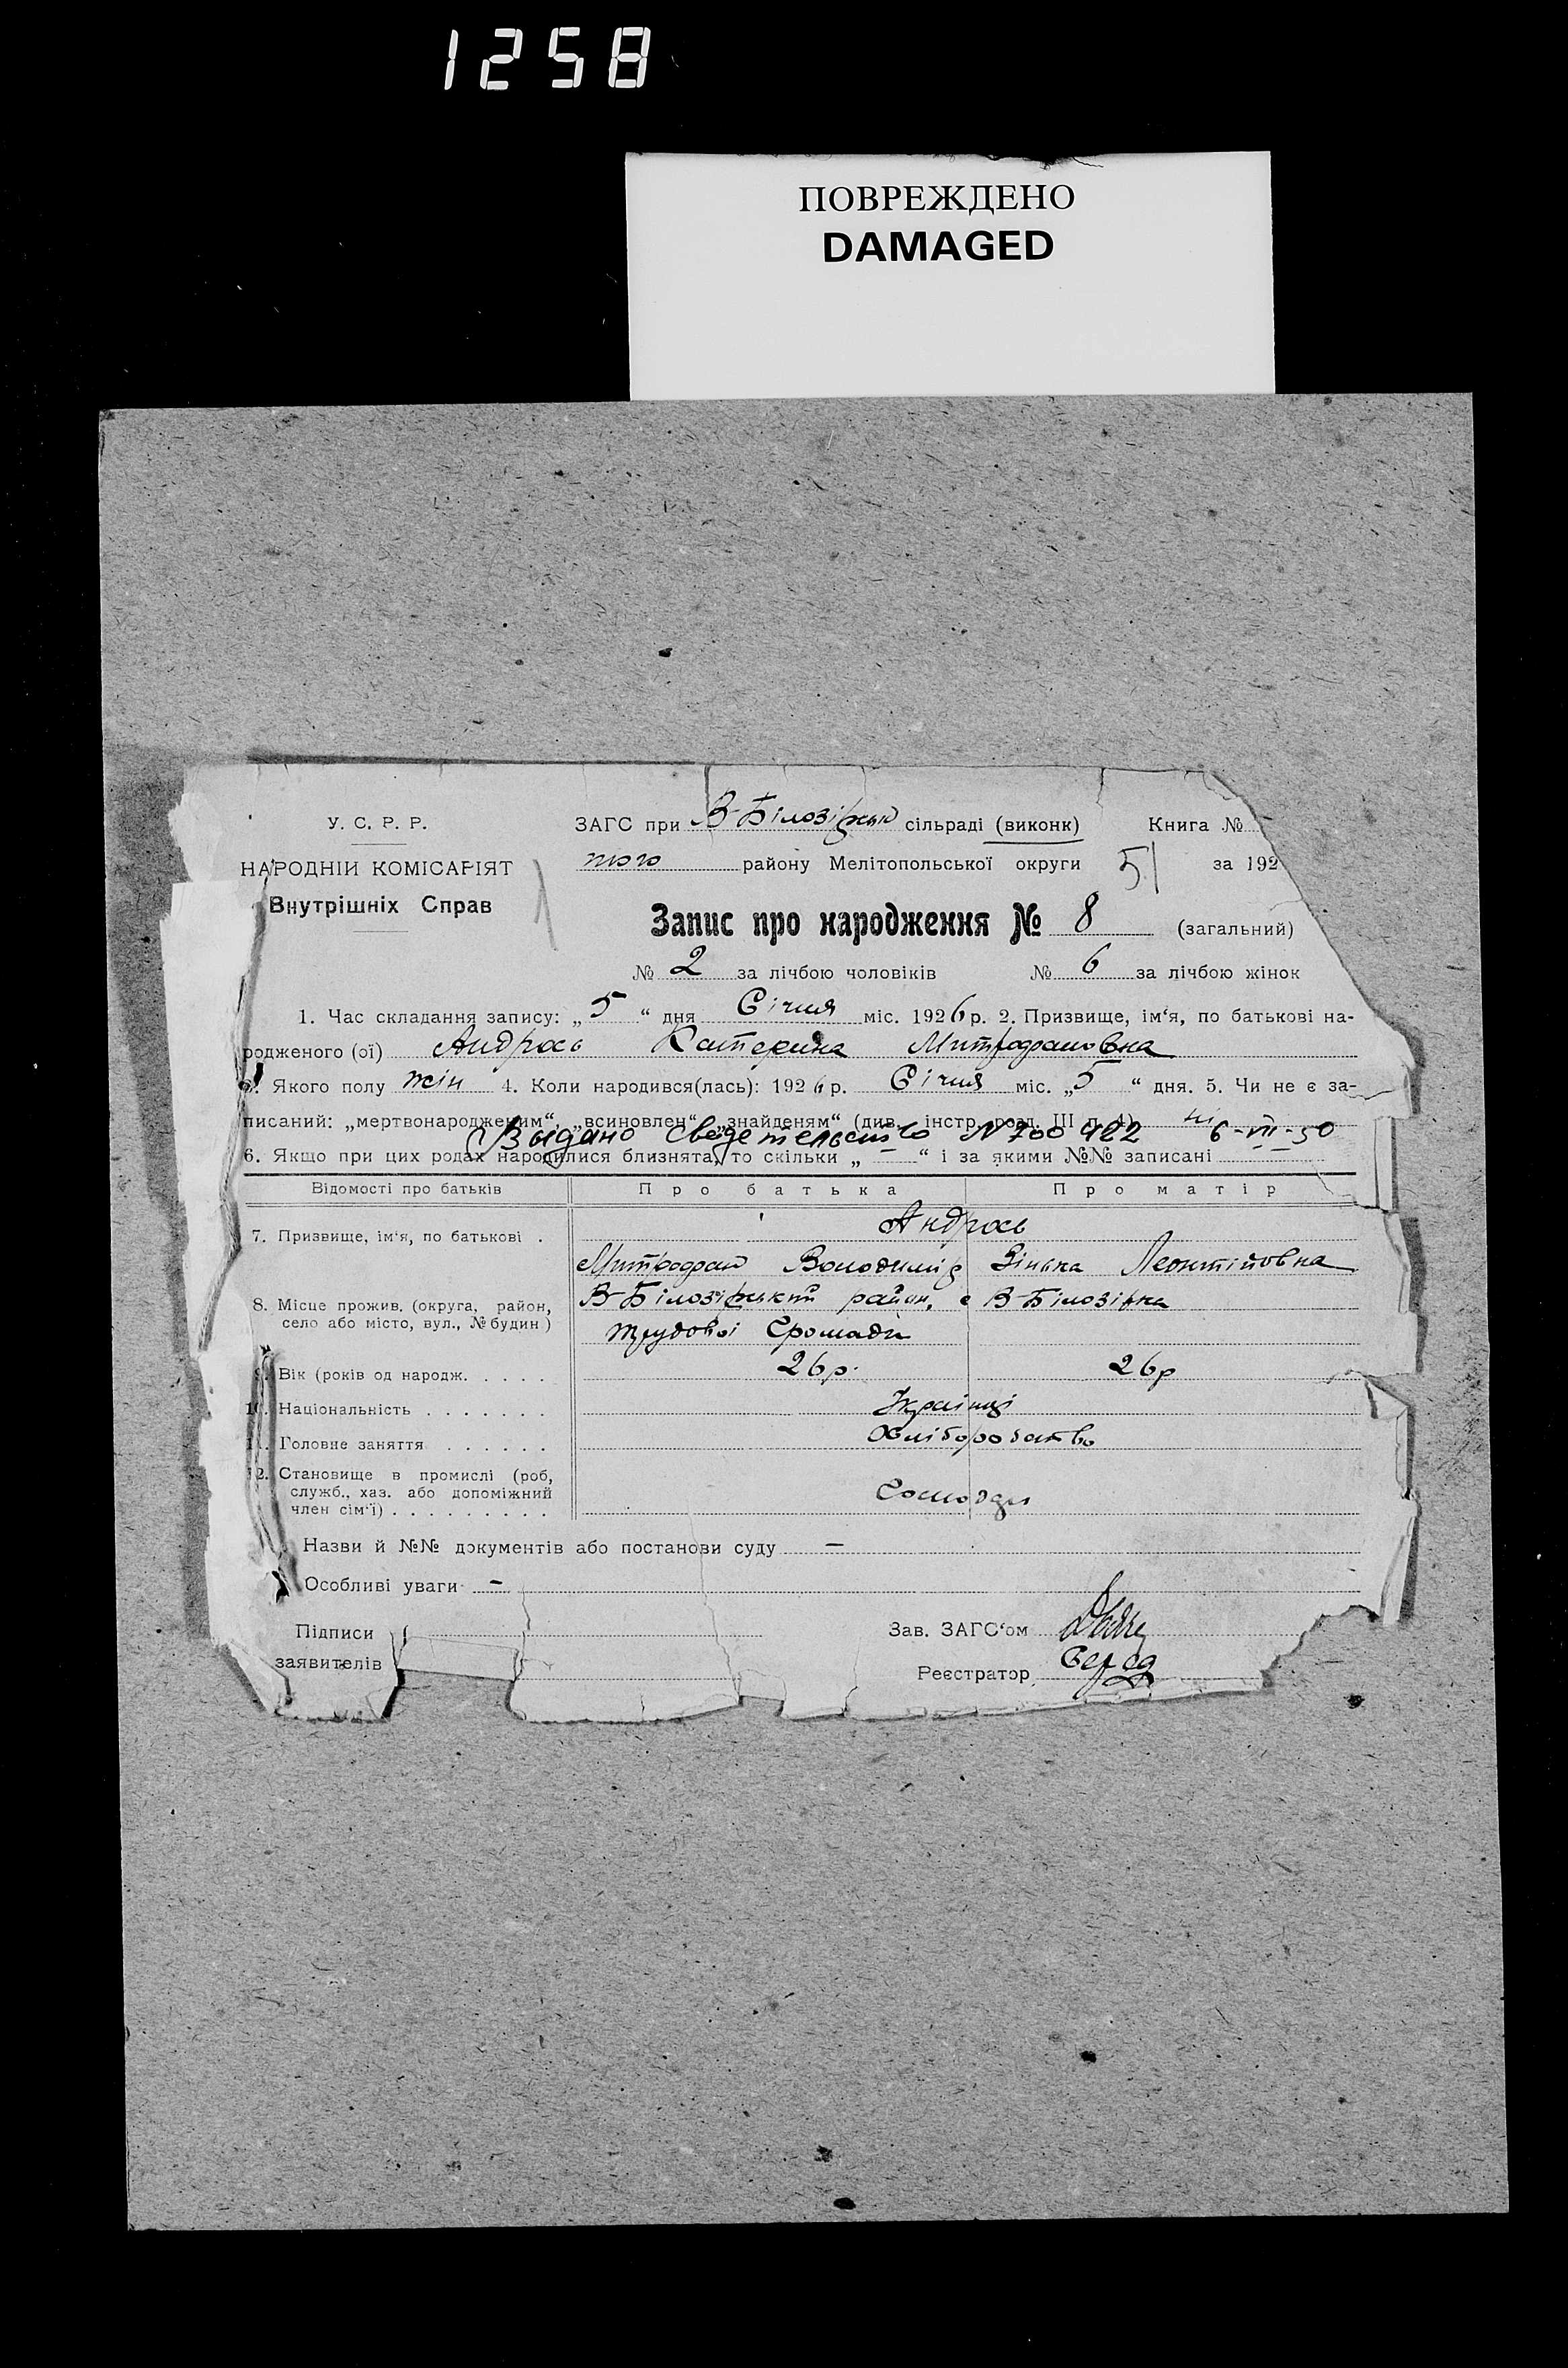 1258
ПОВРЕЖДЕНО
DAMAGED
У. С. Р. Р.
НАРОДНІЙ КОМІСАРІЯТ
Внутрішніх Справ
ЗАГС при В-Білозірськ сільраді (виконк)
Книга №
того району Мелітопольської округи 51 за 192
Запис про народження № 8 (загальний)
№ 2 за лічбою чоловіків № 6 за лічбою жінок
1. Час складання запису: „5“ дня Січня міс. 1926 р. 2. Призвище, ім‘я, по батькові на-
родженого (ої) Андрось Катерина Митрофановна
3. Якого полу жін 4. Коли народився(лась): 1926 р. Січня міс. „5“ дня. 5. Чи не є за-
писаний: „мертвонародженим“, „всиновлен“ „знайденям“ (див. інстр. розд. III п. 4) ні
Выдано Сведетельство №700422 6-VII-50
6. Якщо при цих родах народилися близнята, то скільки „ — “ і за якими №№ записані
Відомості про батьків Про батька Про матір
7. Призвище, ім‘я, по батькові . Андрось
Митрофан Володимір Зінька Леонтійовна
8. Місце прожив. (округа, район, село або місто, вул., № будин) В-Білозірський район, с В-Білозірка
Трудової Громади
9. Вік (років од народж. . . . . 26 р. 26 р
10. Національність . . . . . . . Українці
11. Головне заняття . . . . . . Хліборобство
12. Становище в промислі (роб, служб., хаз. або допоміжний член сім‘ї) . . . . . . . . .
Назви й №№ документів або постанови суду —
Особливі уваги —
Підписи
заявителів
Зав. ЗАГС‘ом
Реєстратор